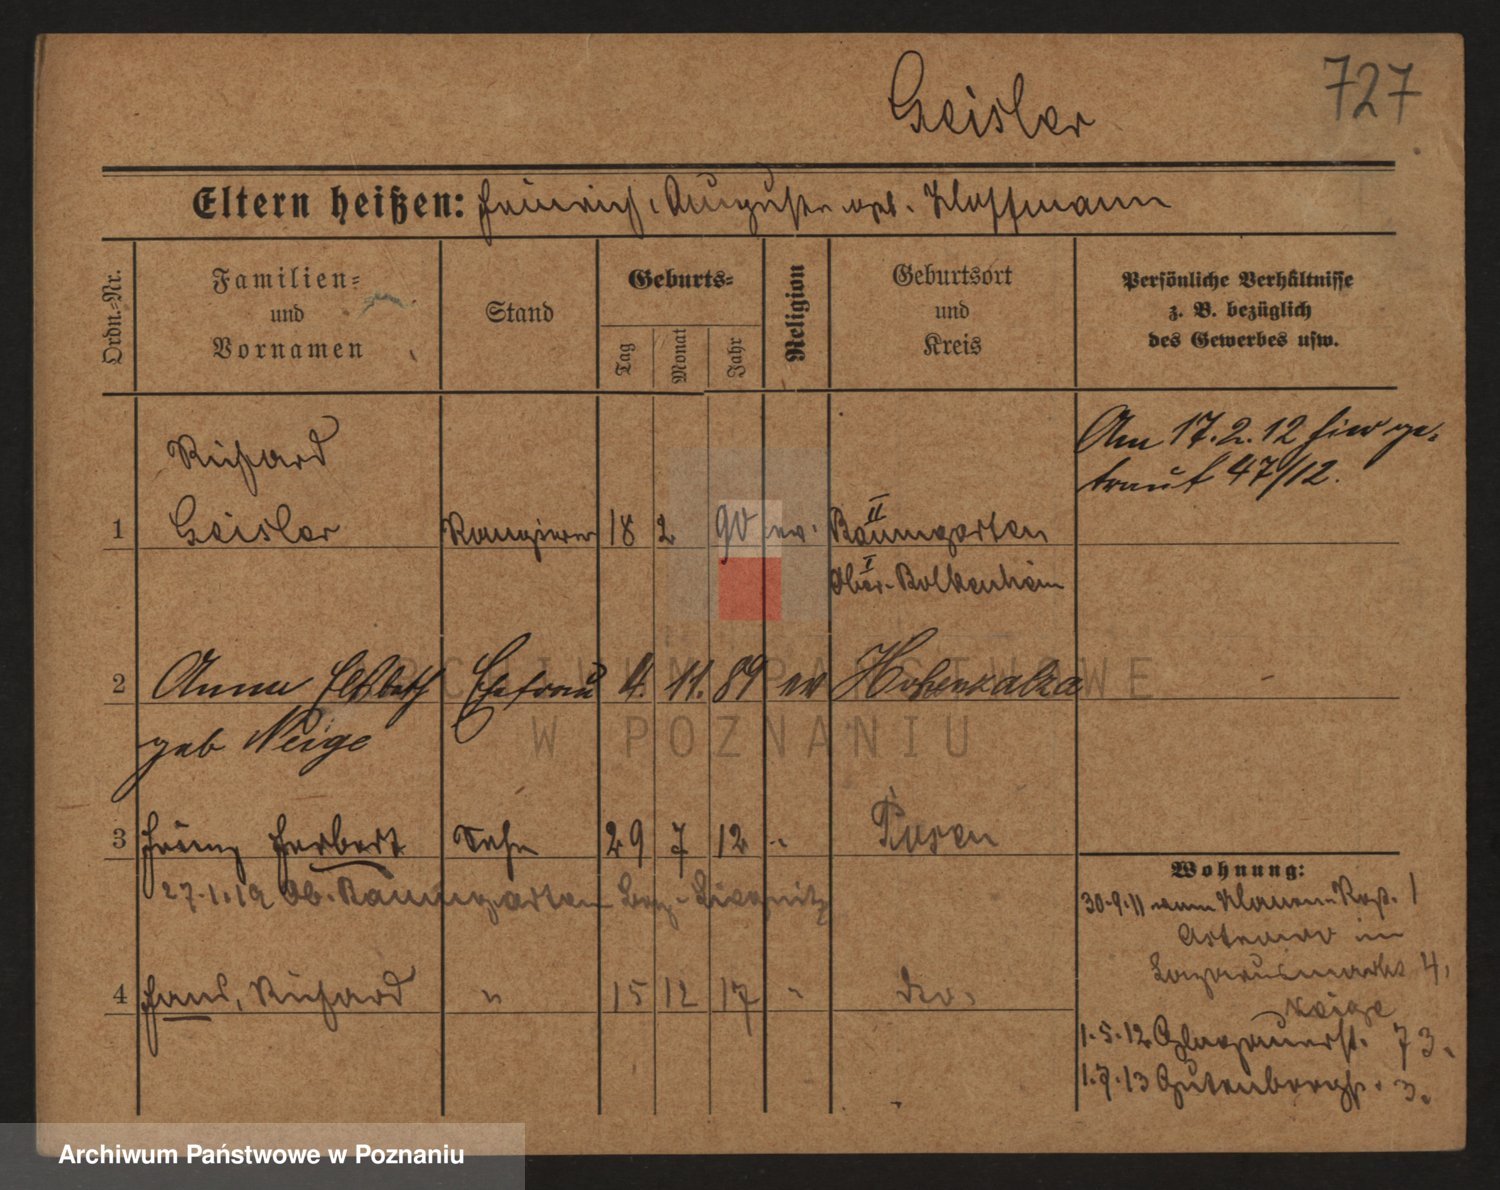 Geisler
727
Eltern heißen: Heinrich, Auguste geb. Hoffmann
Ordn.-Nr.
Familien-
und
Vornamen
Stand
Geburts-
Tag
Monat
Jahr
Religion
Geburtsort
und
Kreis
Persönliche Verhältnisse
z. B. bezüglich
des Gewerbes usw.
Am 17.2.12 hier ge-
traut 47/12.
Richard
1 Geisler Rangierer 18 2 90 ev. II Baumgarten
I Ober-Bolkenhain
2 Anna Elsbeth Ehefrau 4. 11. 89 ev Hohensalza -
geb Neige
3 Herbert Sohn 29 7 12 " Posen
27.1.19 Ob. Baumgarten Liegnitz
4 Hans, Richard " 15 12 17 " do.
Wohnung:
30.9.11 1
im
Lazarusmarkt 4,
Neige
1.5.12 Glogauerst. 73.
1.7.13 Gutenbergst. 3.
ARCHIWUM PAŃSTWOWE
W POZNANIU
Archiwum Państwowe w Poznaniu